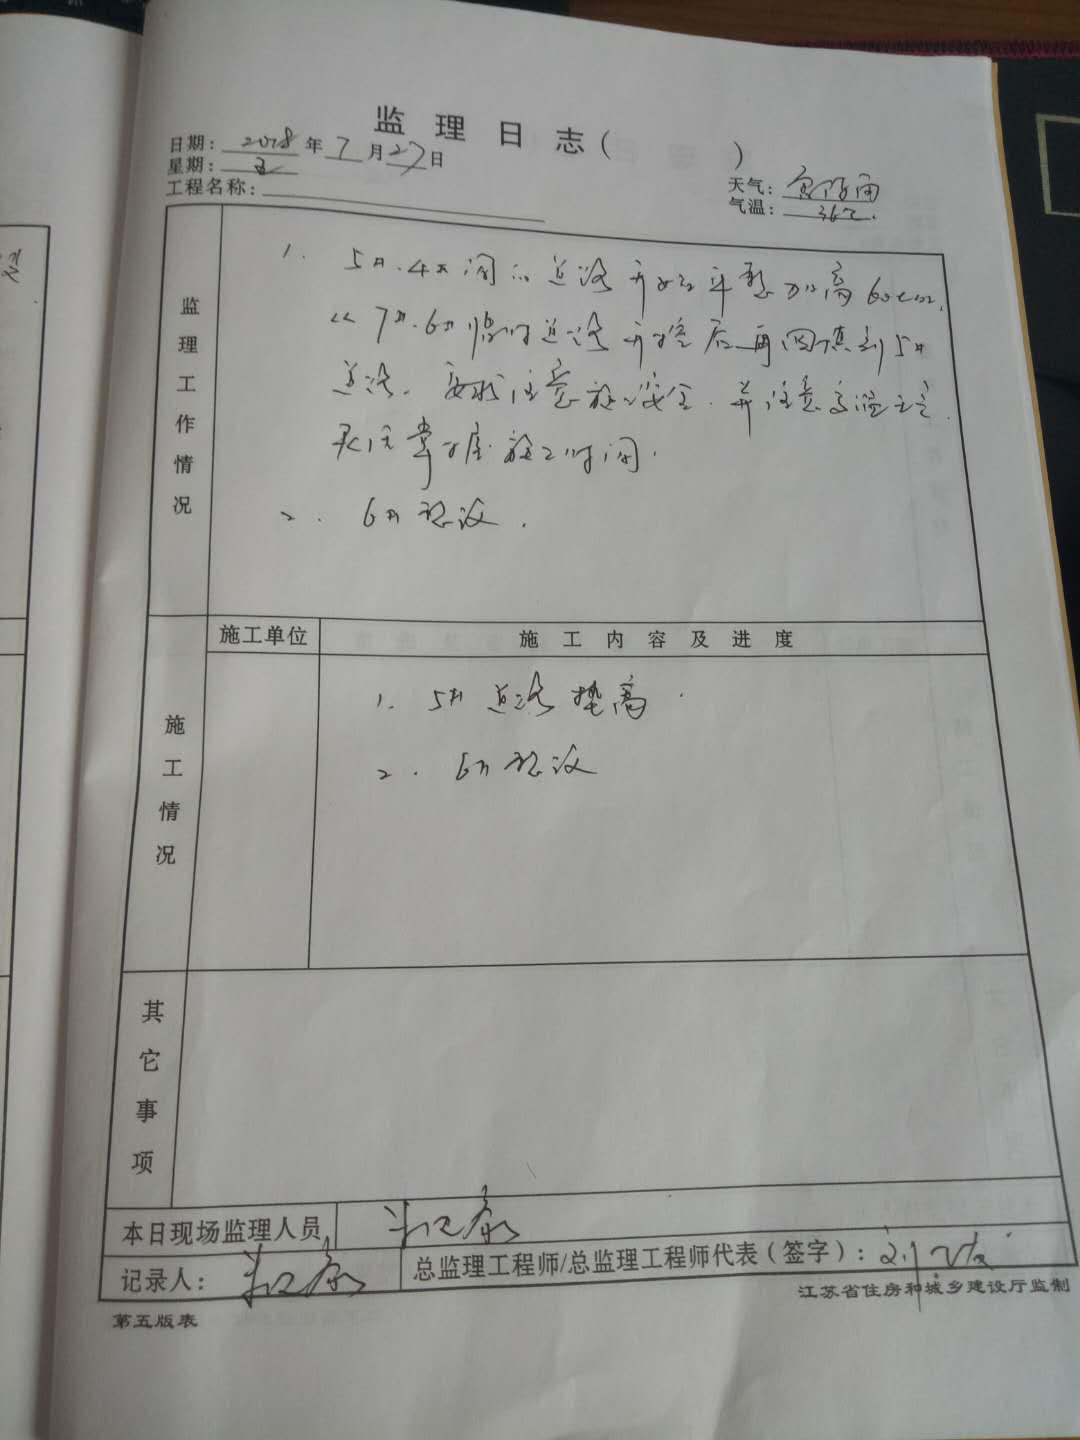 监理日志( )
日期: 2018 年 7 月 27 日
星期: 五
天气:
工程名称:
气温: 36℃.
监理工作情况
1. 5#.4#间的道路开始平整加高60cm,
7#.6#临时道路开挖后再回填到5#
道路. 要求注意施工安全. 并注意高温
施工时间.
2. 6#
施工情况
施工单位 施工内容及进度
1. 5#道路垫高.
2. 6#
其它事项
本日现场监理人员
记录人: 总监理工程师/总监理工程师代表(签字): 刘
第五版表 江苏省住房和城乡建设厅监制